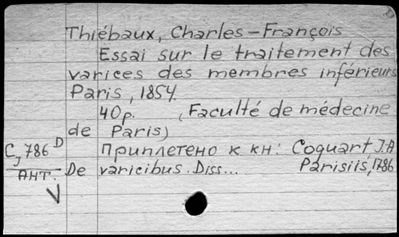 Thiébaux, Charles-François
Essai sur le traitement des
varices des membres inférieurs
Paris, 1854.
40p. (Faculté de médecine
de Paris)
C, 786 D
Приплетено к кн: Coquart J.A
АНТ. De varicibus. Diss... Parisiis, 1786
V